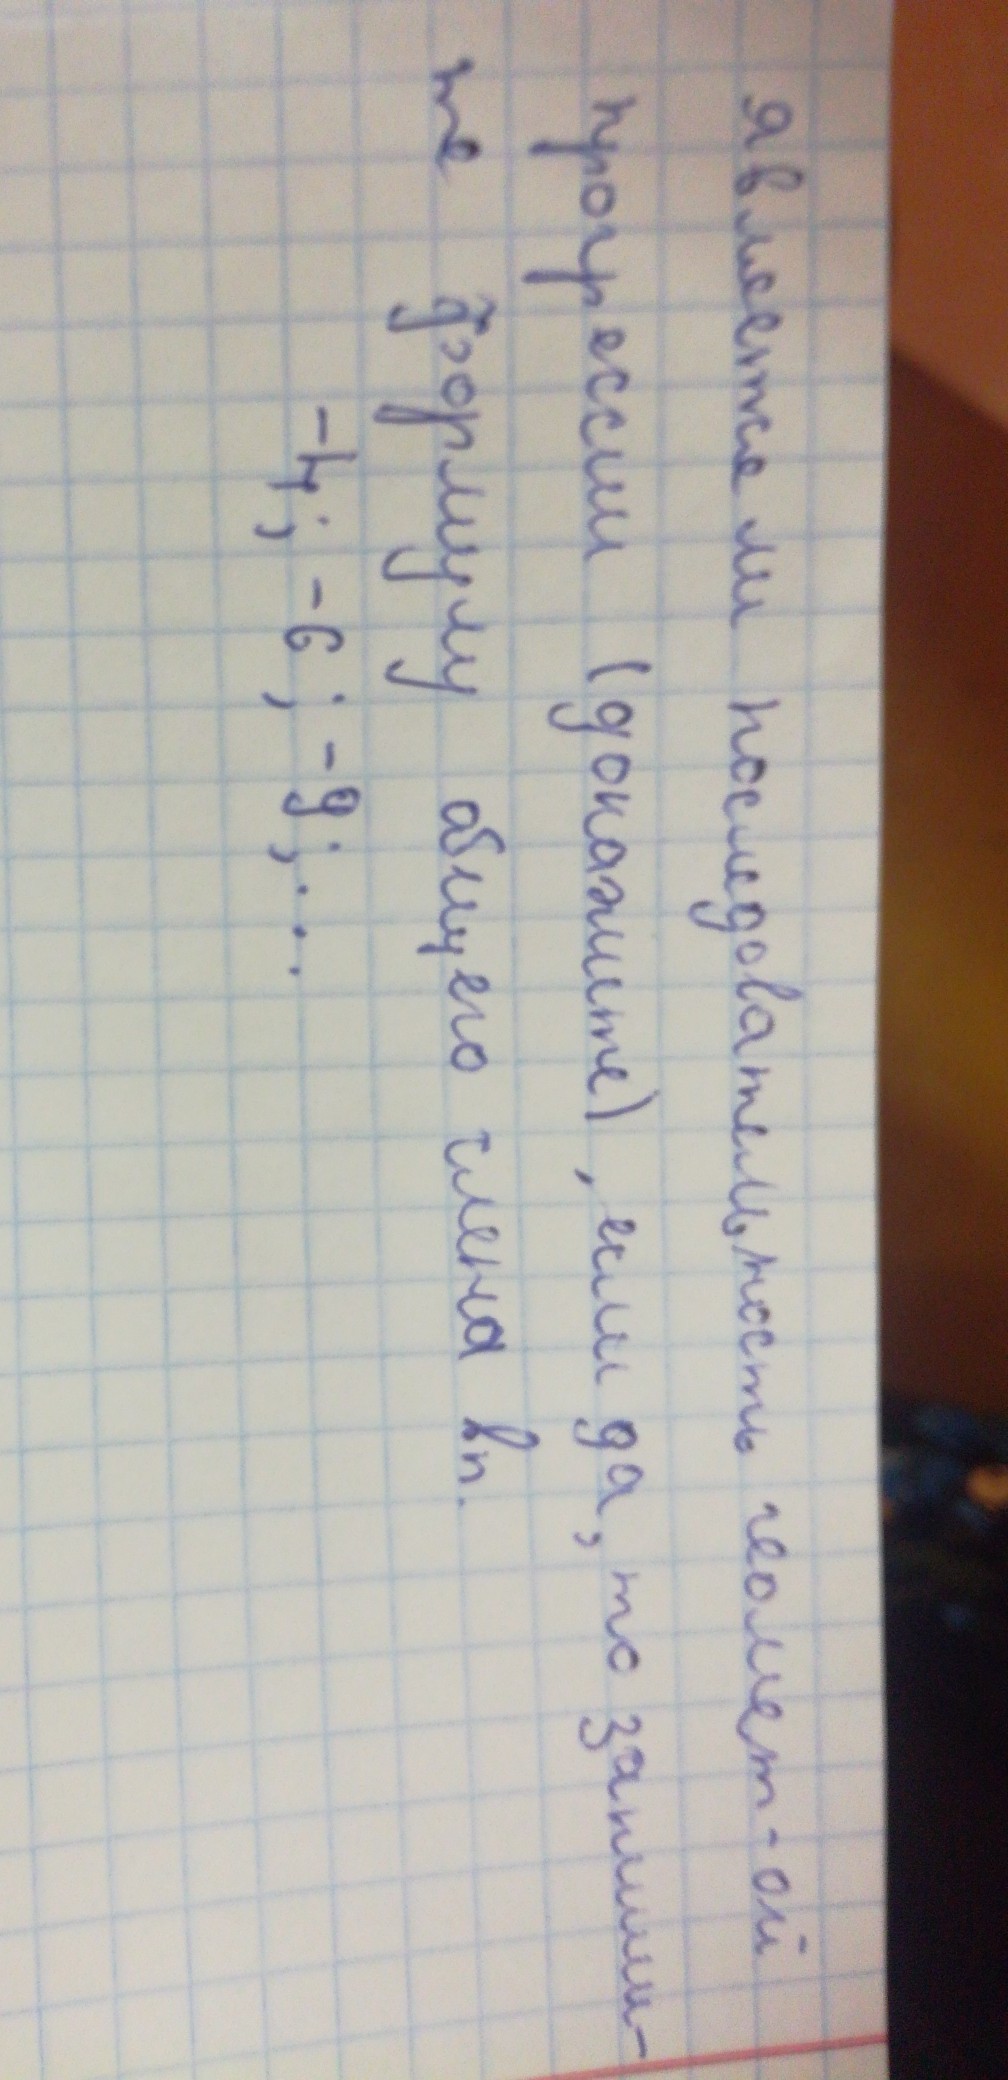 Является ли последовательность геомет-ой
прогрессии (докажите), если да, то запиши-
те формулу общего члена bn.
-4; -6; -9; ...